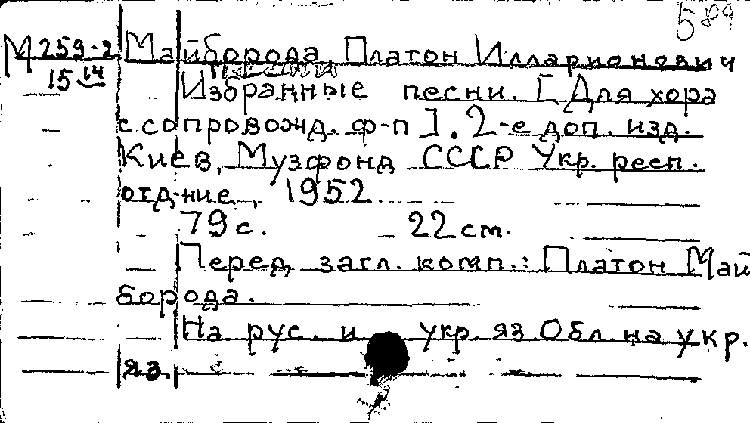 589
М 259-2 Майборода, Платон Илларионович
15 14 Избранные песни. [Для хора
с сопровожд. ф-п]. 2-е доп. изд.
Киев, Музфонд СССР Укр. респ.
отд-ние, 1952.
79 с. 22 см.
Перед загл. комп.: Платон Май
борода.
На рус. и укр. яз. Обл. на укр.
яз.